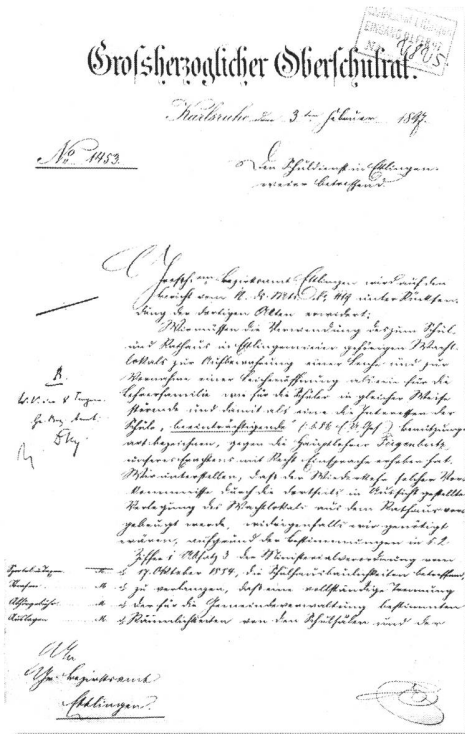 Grossherzoglicher Oberschulrat.
Karlsruhe den 3ten Februar 1897.
No 1453.
Den Schuldienst in Ettlingen-
weier betreffend.
Bezirksamt Ettlingen wird auf den
Bericht vom unter Rücksen-
dung der dortigen Akten erwidert:
Wir müssen die Verwendung des zum Schul
und Rathaus in Ettlingenweier gehörigen Wacht-
lokals zur Aufbewahrung einer Leiche und zur
Vornahme einer Leichenöffnung als eine für die
Lehrerfamilie wie für die Schüler in gleicher Weise
störende und damit als eine die Interessen der
Schule beeinträchtigende Benützungs-
art bezeichnen, gegen die Hauptlehrer
unseres Erachtens mit Recht Einsprache erhoben hat.
Wir unterstellen, daß der Wiederkehr solcher Vor-
kommnisse durch die dortseits in Aussicht gestellte
Verlegung des Wachtlokals aus dem Rathaus vor-
gebeugt werde, widrigenfalls wir genötigt
wären, aufgrund der Bestimmungen in § 2
Ziffer 1 Absatz 3 der Ministerialverordnung vom
17. Oktober 1884, die Schulhausbaulichkeiten betreffend,
zu verlangen, daß eine vollständige Trennung
der für die Gemeindeverwaltung bestimmten
Räumlichkeiten von den Schulsälen und der
An
Gr. Bezirksamt
Ettlingen.